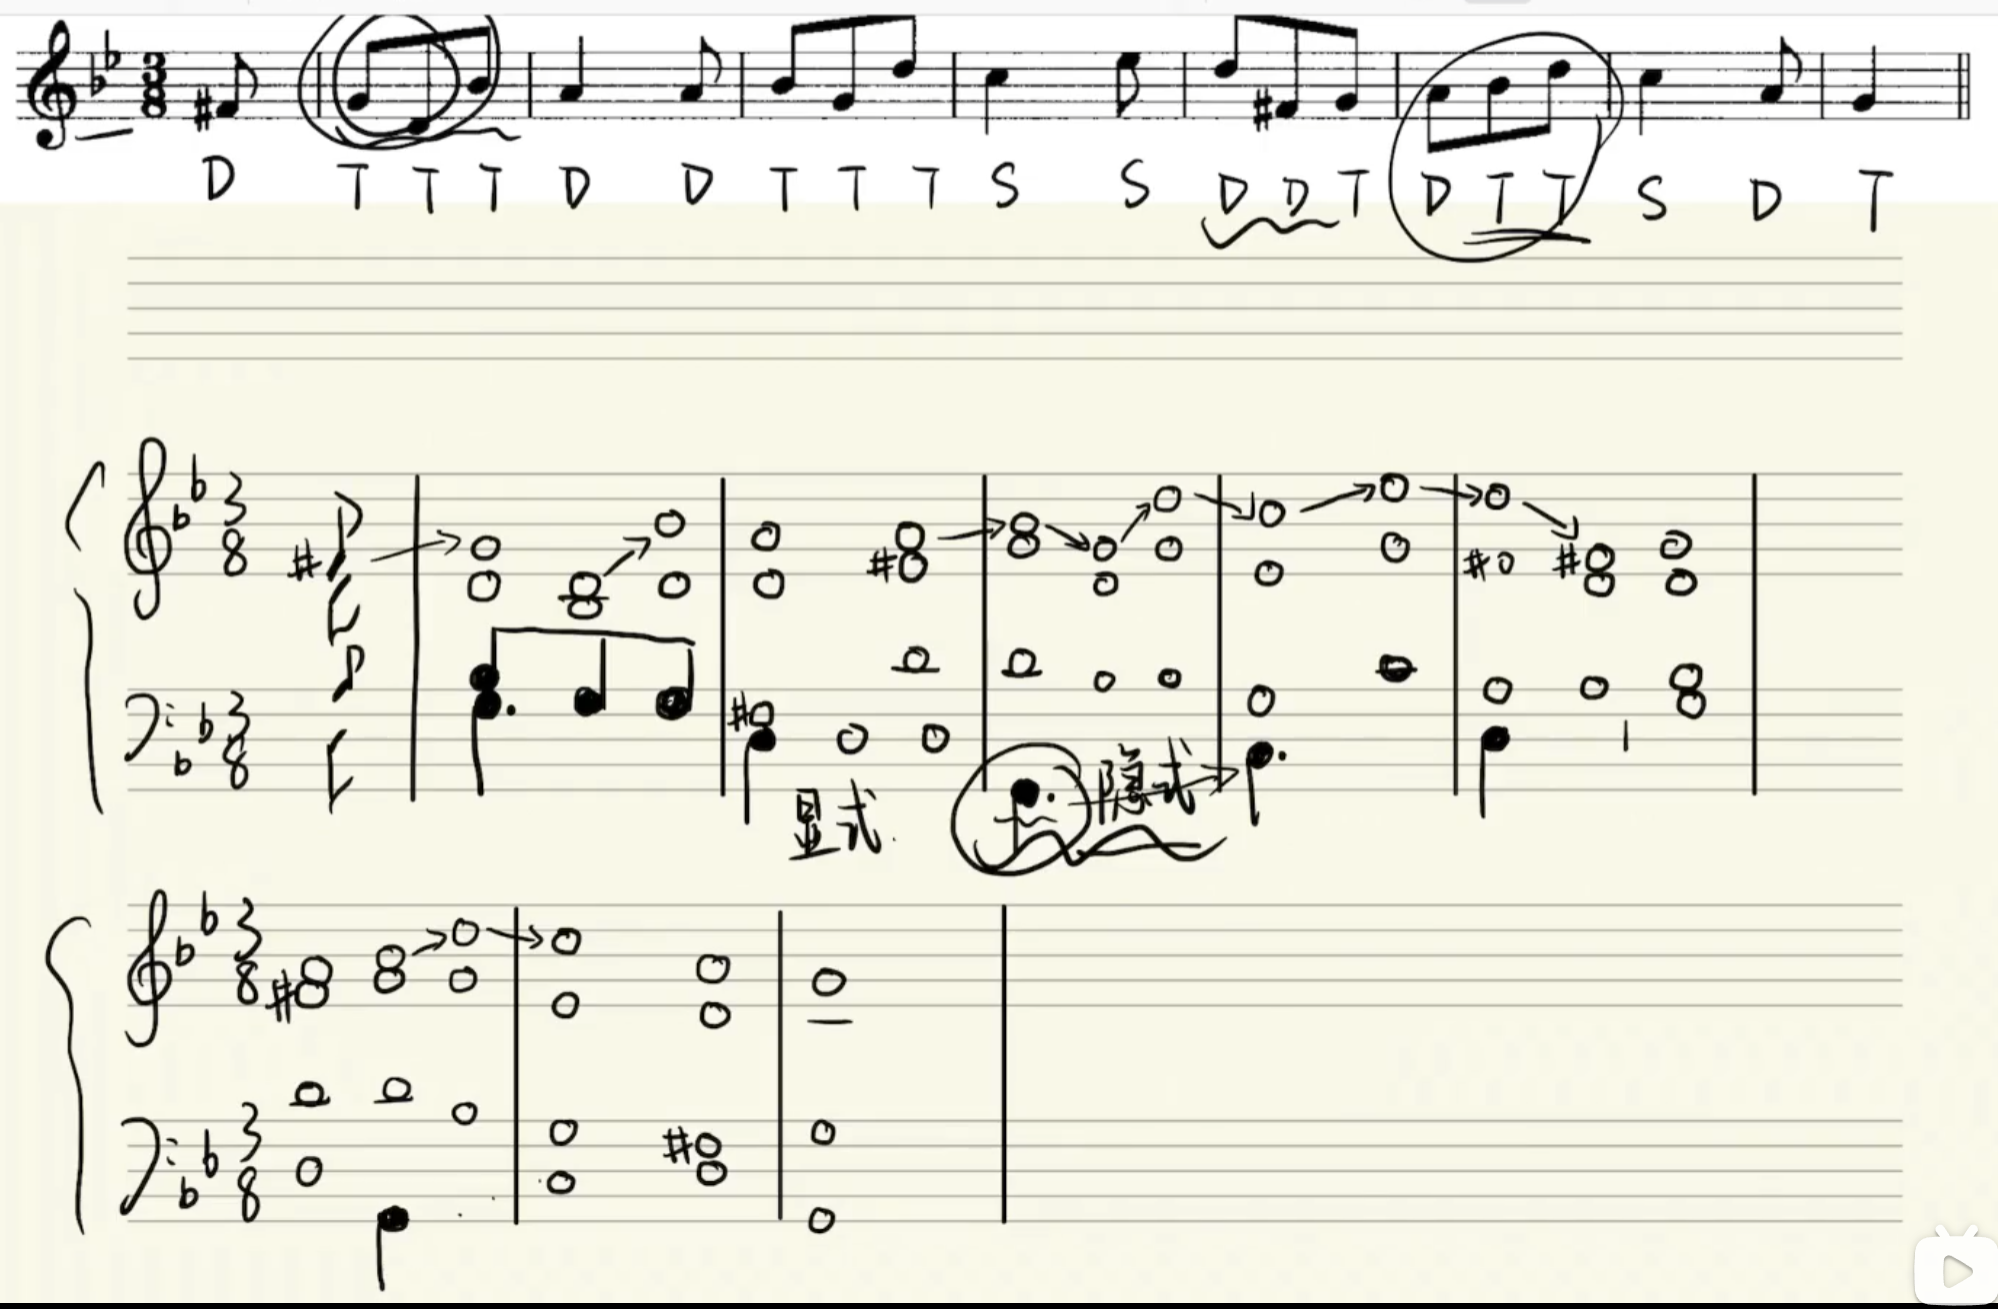 3 8
D T T T D D T T T S S D D T D T T S D T
3 8
3 8
显式 隐式
3 8
3 8